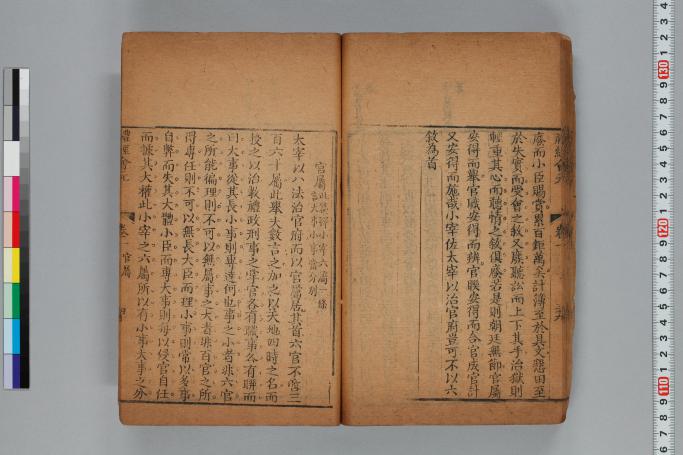 廢而小臣賜賚累百鉅萬矣計簿至於具文懇田至
於失實而受會之敘又廢聽訟而上下其手治獄則
輕重其心而聽情之敘俱廢若是則朝廷無卹官屬
安得而舉官職安得而辨官聯安得而合官成官計
又安得而施哉小宰佐太宰以治官府豈可不以六
敘為首
官屬此禁得小宰六屬一條
言大事小事當分別
太宰以八法治官府而以官屬居其首六官不啻三
百六十屬此舉大數言之加之以天地四時之名而
授之以治教禮政刑事之掌官各有職事各有聯而
曰大事從其長小事則專達何也事之小者非六官
之所能徧理則不可以無屬事之大者非百官之所
得專任則不可以無長大臣而理小事則常以多事
自弊而失其大體小臣而專大事則每以侵官自任
而撓其大權此小宰之六屬所以有小事大事之分
禮經會元 卷一 官屬 四